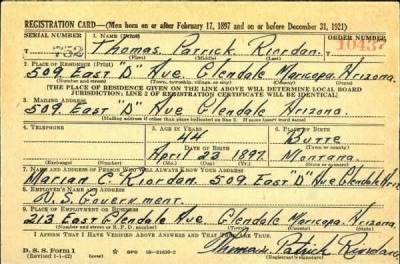 REGISTRATION CARD—(Men born on or after February 17, 1897 and on or before December 31, 1921)
SERIAL NUMBER 1. NAME (Print) ORDER NUMBER
T 752 Thomas Patrick Riordan. T 10437
(First) (Middle) (Last)
2. PLACE OF RESIDENCE (Print)
509. East "D" Ave. Glendale Maricopa. Arizona.
(Number and street) (Town, township, village, or city) (County) (State)
[THE PLACE OF RESIDENCE GIVEN ON THE LINE ABOVE WILL DETERMINE LOCAL BOARD
JURISDICTION; LINE 2 OF REGISTRATION CERTIFICATE WILL BE IDENTICAL]
3. MAILING ADDRESS
509. East "D" Ave Glendale Arizona.
[Mailing address if other than place indicated on line 2. If same insert word same]
4. TELEPHONE 5. AGE IN YEARS 6. PLACE OF BIRTH
44 Butte
DATE OF BIRTH (Town or county)
April 23 1897. Montana.
(Exchange) (Number) (Mo.) (Day) (Yr.) (State or country)
7. NAME AND ADDRESS OF PERSON WHO WILL ALWAYS KNOW YOUR ADDRESS
Marian C. Riordan. 509. East "D" Ave Glendale Ariz
8. EMPLOYER'S NAME AND ADDRESS
U.S. Government.
9. PLACE OF EMPLOYMENT OR BUSINESS
213. East Glendale Ave. Glendale Maricopa. Arizona.
(Number and street or R. F. D. number) (Town) (County) (State)
I AFFIRM THAT I HAVE VERIFIED ABOVE ANSWERS AND THAT THEY ARE TRUE.
D. S. S. Form 1 GPO 16—21630-2 Thomas Patrick Riordan.
(Revised 1-1-42) (over) (Registrant's signature)